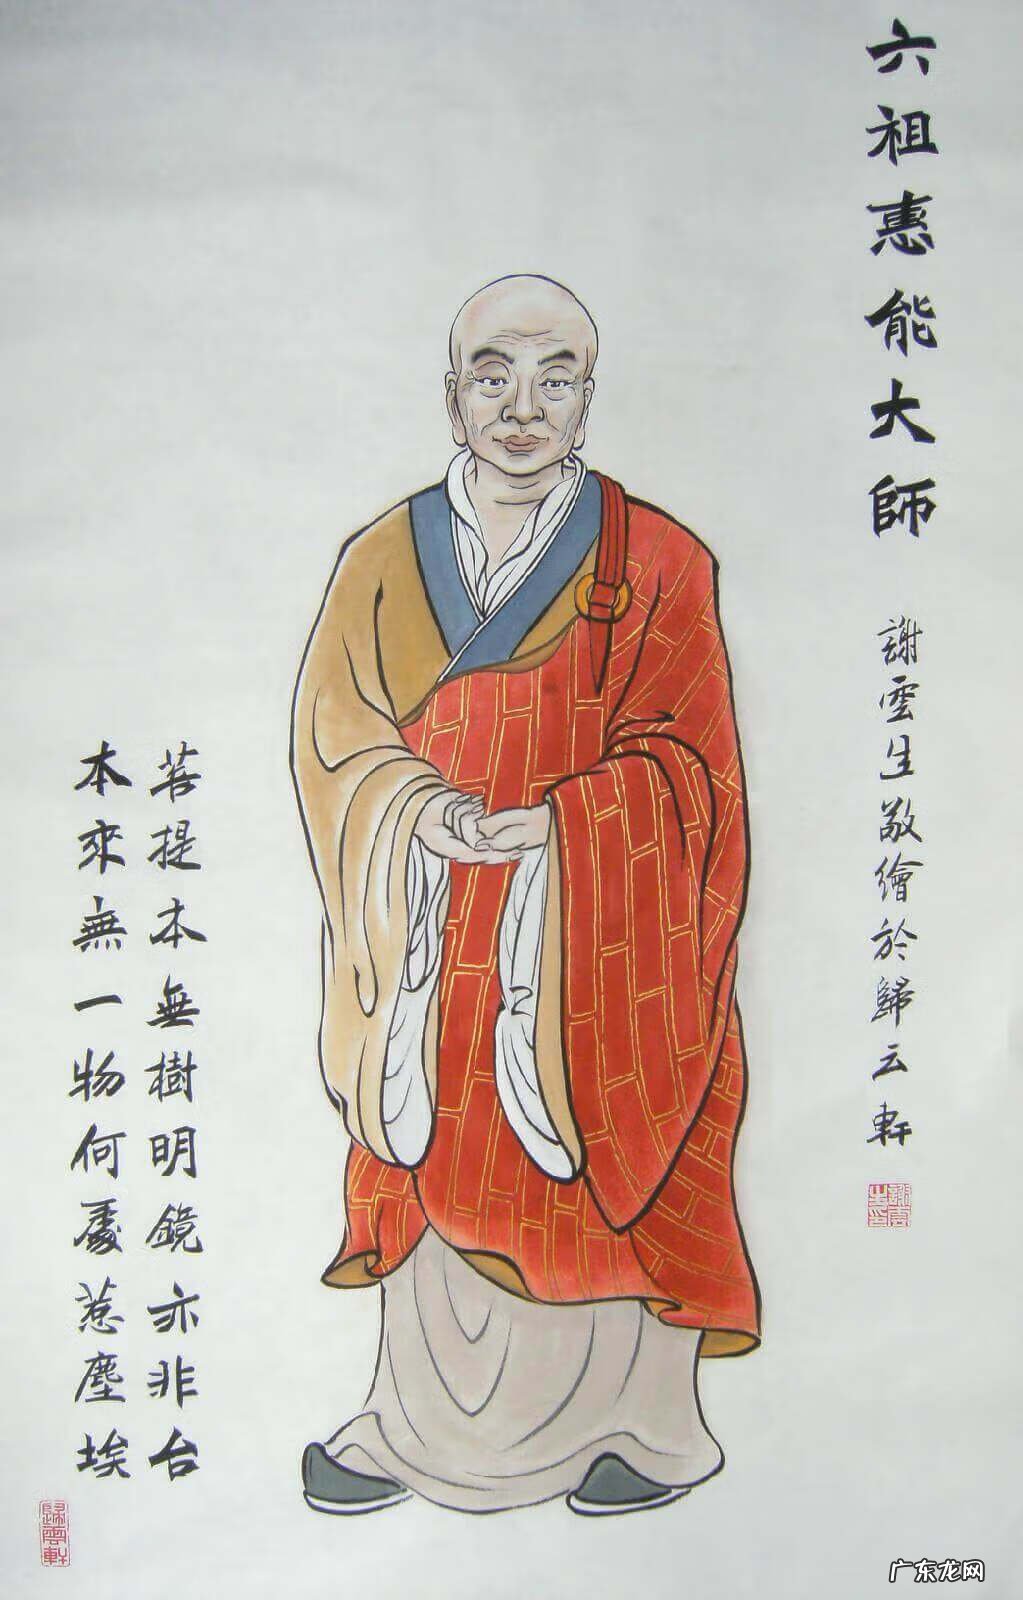 六祖惠能大師
謝雲生敬繪於歸云軒
菩提本無樹明鏡亦非台
本來無一物何處惹塵埃
歸雲軒
广东龙网